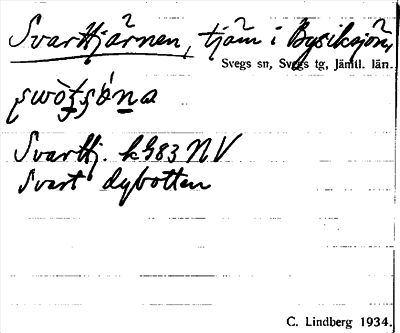 Svarttjärnen, tjärn i Bysiksjön,
Svegs sn, Svegs tg, Jämtl. län.
Svarttj. k983 NV
Svart dybotten
C. Lindberg 1934.